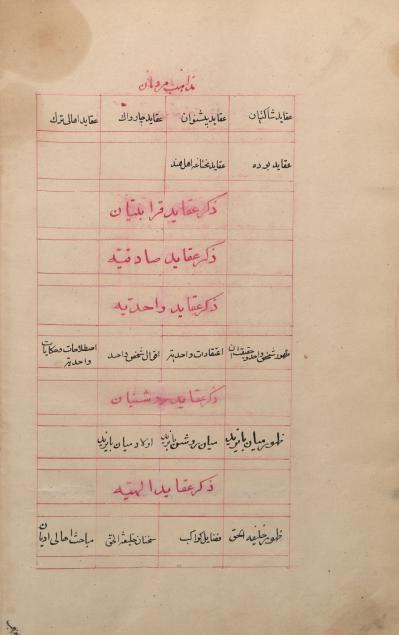 مذاهب مردمان
عقاید شاکنیان عقاید بیشنوان عقاید چارواک عقاید اهالی ترک
عقاید بوده عقاید مختلفه اهل هند
ذکر عقاید قرا بتیان
ذکر عقاید صادقیّه
ذکر عقاید واحدیه
ظهور شخص واحد و حقیقت آن اعتقادات واحدیه اقوال شخص واحد اصطلاحات و حکایات واحدیه
ذکر عقاید روشنیان
ظهور میان بایزید میان روشن بایزید اولاد میان بایزید
ذکر عقاید الهیّه
ظهور خلیفه الحق فضایل کواکب سخنان خلیفة الحق مباحث اهالی ادیان